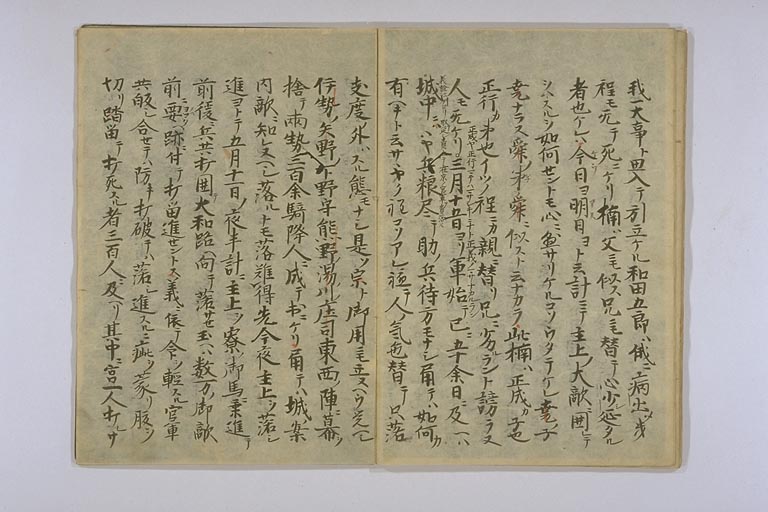 我一大事ト思入テ引立ケル和田五郎ハ俄ニ病出ツ歩
程モ无テ死ニケリ楠ハ父ニモ似ス兄ニモ替テ心少シ延タル
者也ケレハ今日ヨ明日ヨト云計ニテ主上ノ大敵ニ囲レテ
シヲ如何セント心ニ懸サリケルコソウタテケレ堯ノ子
堯ナラス舜ノ弟舜ニ似ストハ云ナカラ此楠ハ正成カ子也
正行カ弟也イツノ程ニカ親ニ替リ兄ニ劣ルラント謗ラヌ
人モ无ケリ三月十五日ヨリ軍始テ已ニ五十余日ニ及ヘハ
城中ニハヤ兵粮尽テ助ノ兵待方モナシ角テハ如何カ
有ヘキト云サヽヤク程コソアレ軈テ人ノ気色替テ只落
支度ノ外ハスル態モナシ是ソ宗ト御用ニモ立ヘシト覚ヘシ
伊勢矢野下野守熊野湯川庄司東西ノ陣ニ幕ヲ
捨テ両勢三百余騎降人ニ成テ出ニケリ角テハ城ノ案
内敵ニ知レヌヘシ落ルトモ落難得先今夜主上ヲ落シ
進ヨトテ五月十一日ノ夜半計ニ主上ヲ寮ノ御馬ニ乗進テ
前後ニ兵共打囲大和路ヘ向テ落サセ玉ヘハ数万ノ御敵
前ニ要跡ニ付テ打留進セントス義ニ依テ命ヲ軽スル官軍
共返シ合セテハ防キ打破テハ落シ進スルニ疵ヲ蒙リ腹ヲ
切リ踏留テ打死スル者三百人ニ及ヘリ其中ニ宮一人打レサ